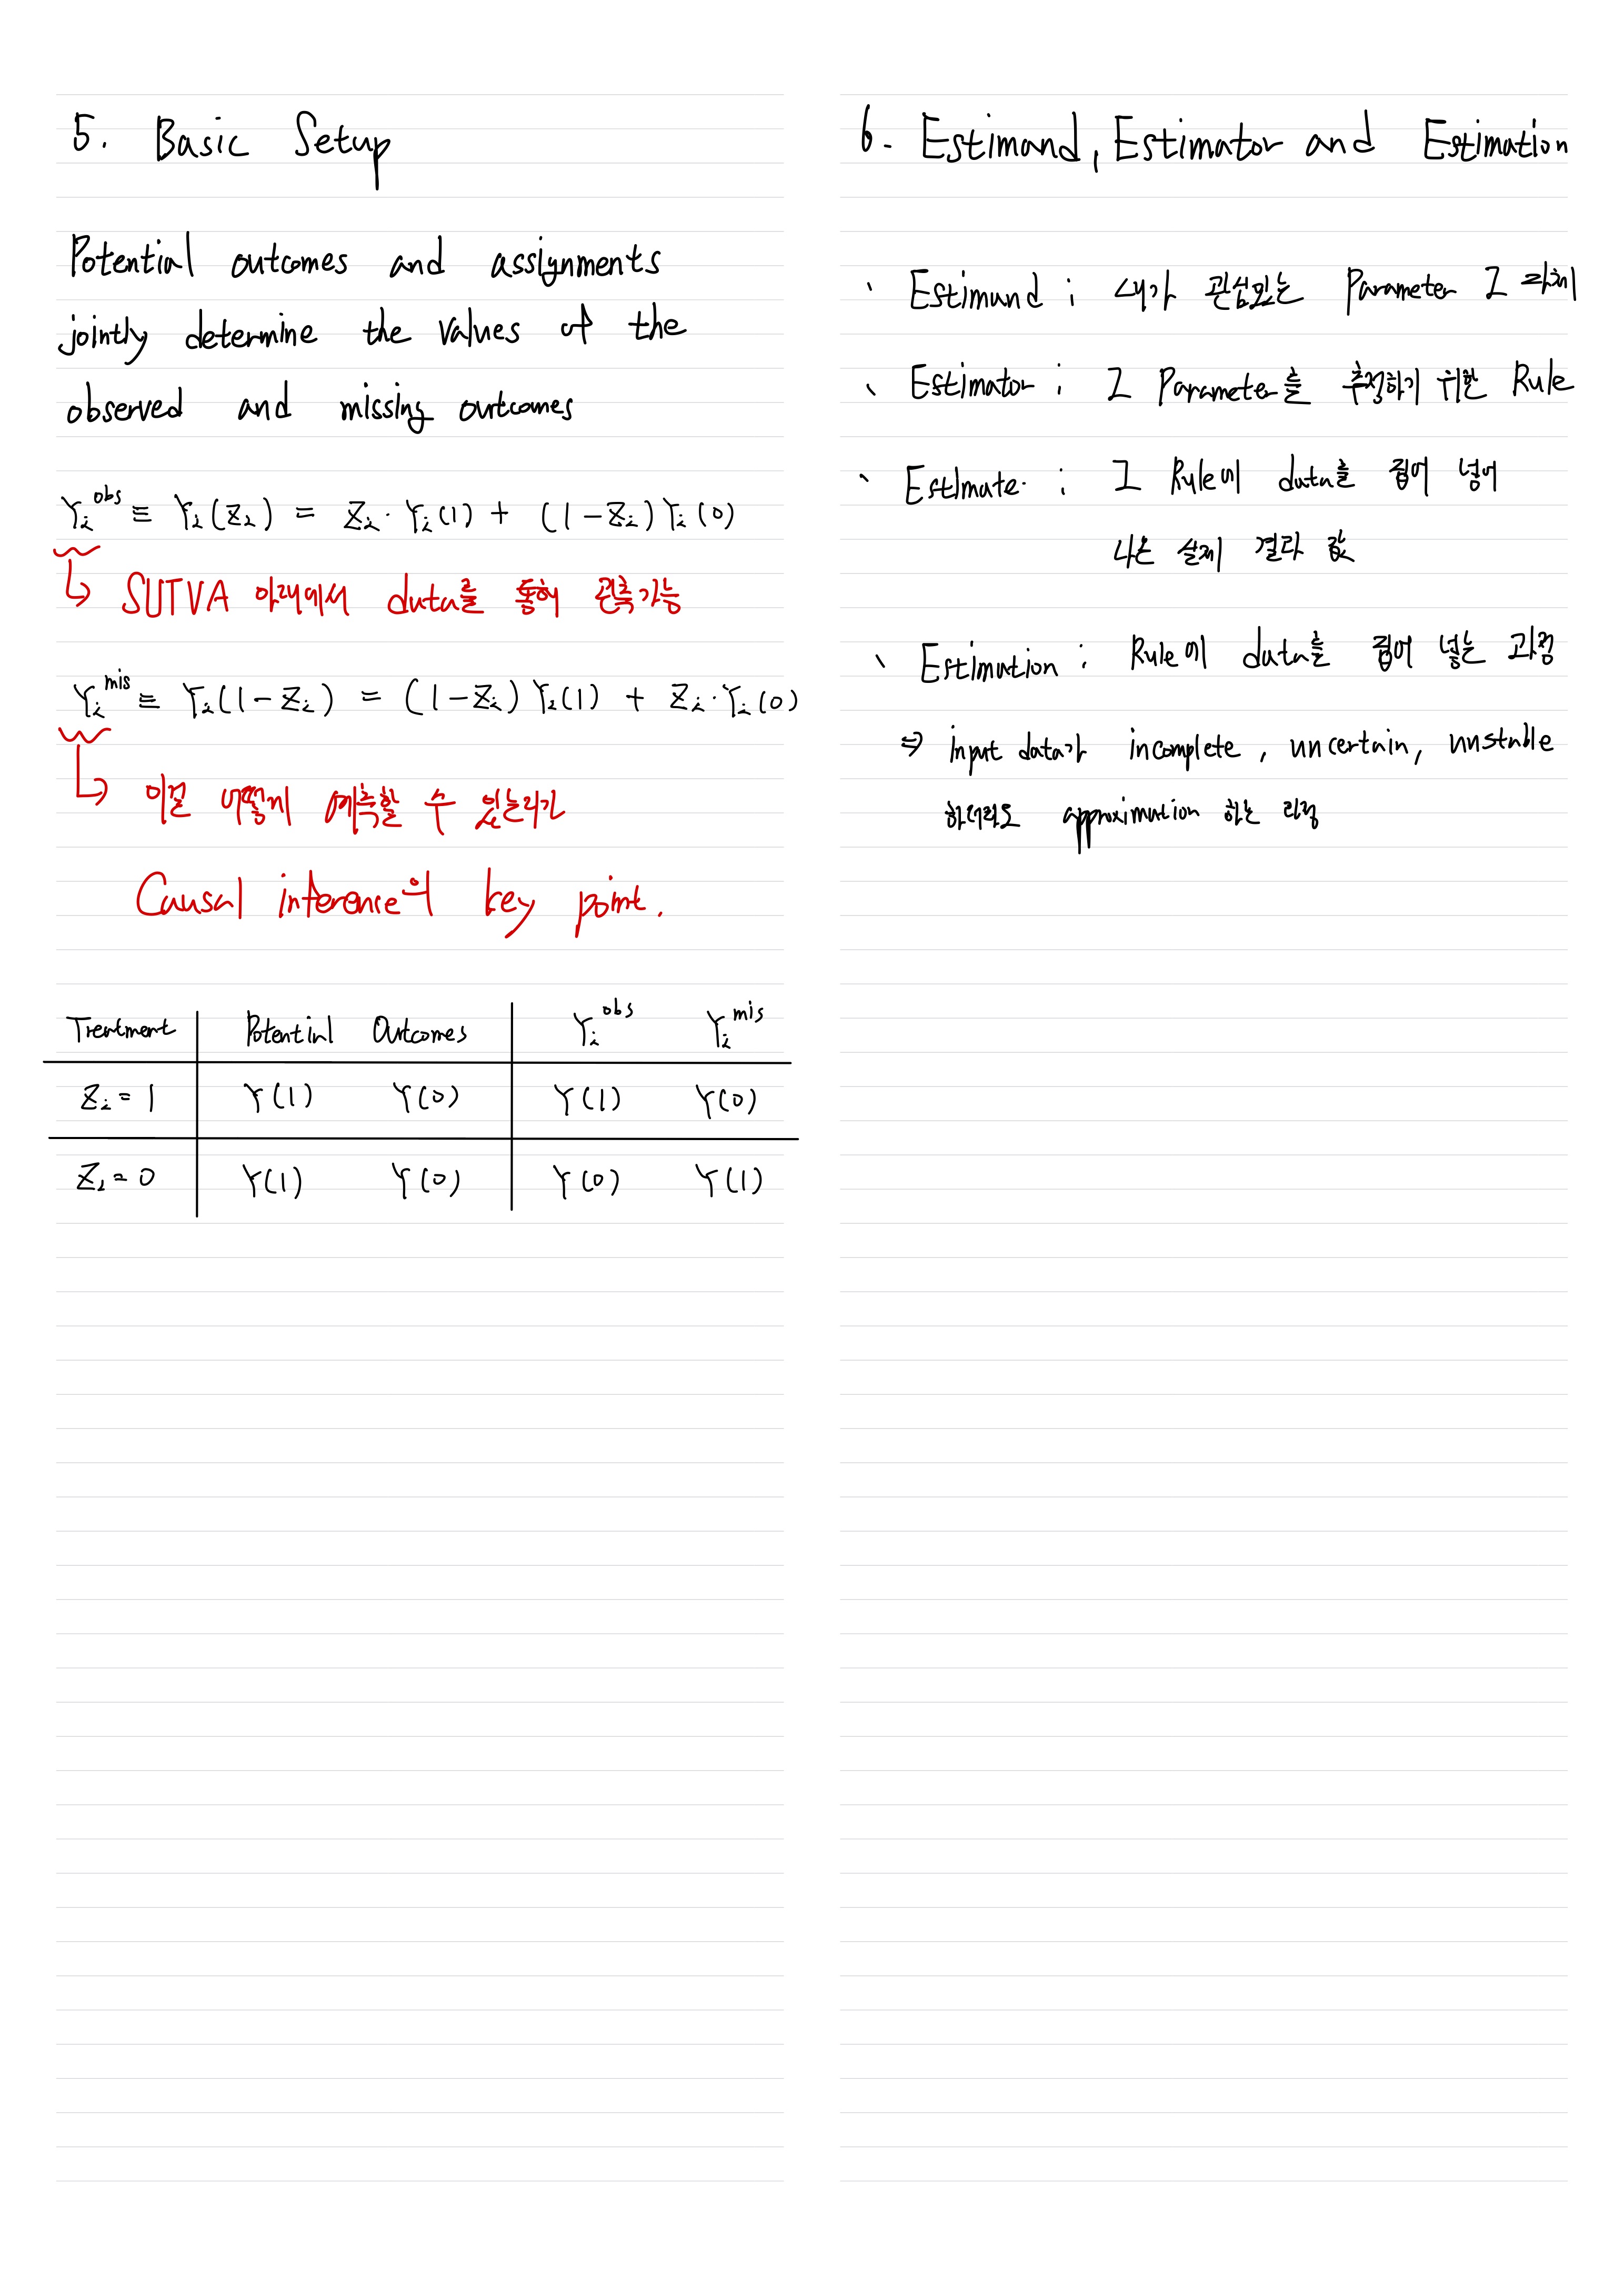 5. Basic Setup
Potential outcomes and assignments
jointly determine the values of the
observed and missing outcomes
Yᵢ^obs ≡ Yᵢ(Zᵢ) = Zᵢ · Yᵢ(1) + (1 − Zᵢ) Yᵢ(0)
↳ SUTVA 아래에서 data를 통해 관측가능
Yᵢ^mis ≡ Yᵢ(1 − Zᵢ) = (1 − Zᵢ) Yᵢ(1) + Zᵢ · Yᵢ(0)
↳ 이걸 어떻게 예측할 수 있는가
Causal inference의 key point.
Treatment Potential Outcomes Yᵢ^obs Yᵢ^mis
Zᵢ = 1 Y(1) Y(0) Y(1) Y(0)
Zᵢ = 0 Y(1) Y(0) Y(0) Y(1)
6. Estimand, Estimator and Estimation
· Estimand : 내가 관심있는 Parameter 그 자체
· Estimator : 그 Parameter를 추정하기 위한 Rule
· Estimate : 그 Rule에 data를 집어 넣어
나온 실제 결과 값
· Estimation : Rule에 data를 집어 넣는 과정
⇒ input data가 incomplete, uncertain, unstable
하더라도 approximation 하는 과정